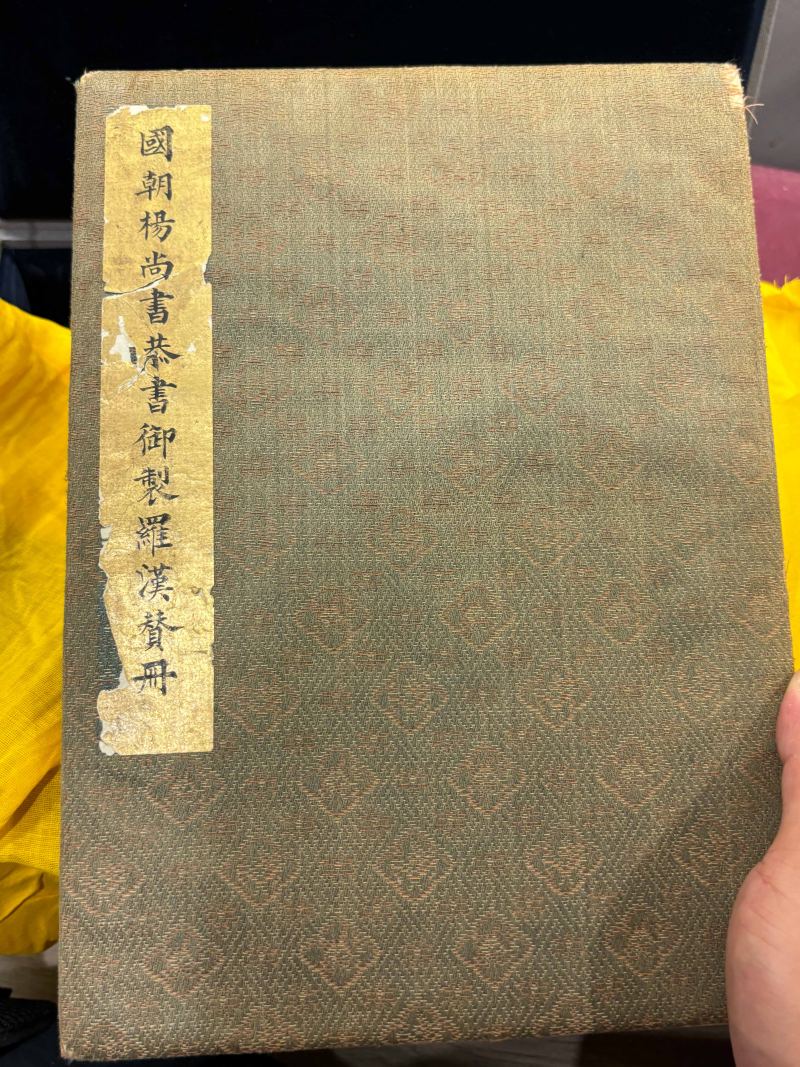 國朝楊尚書恭書御製羅漢贊冊